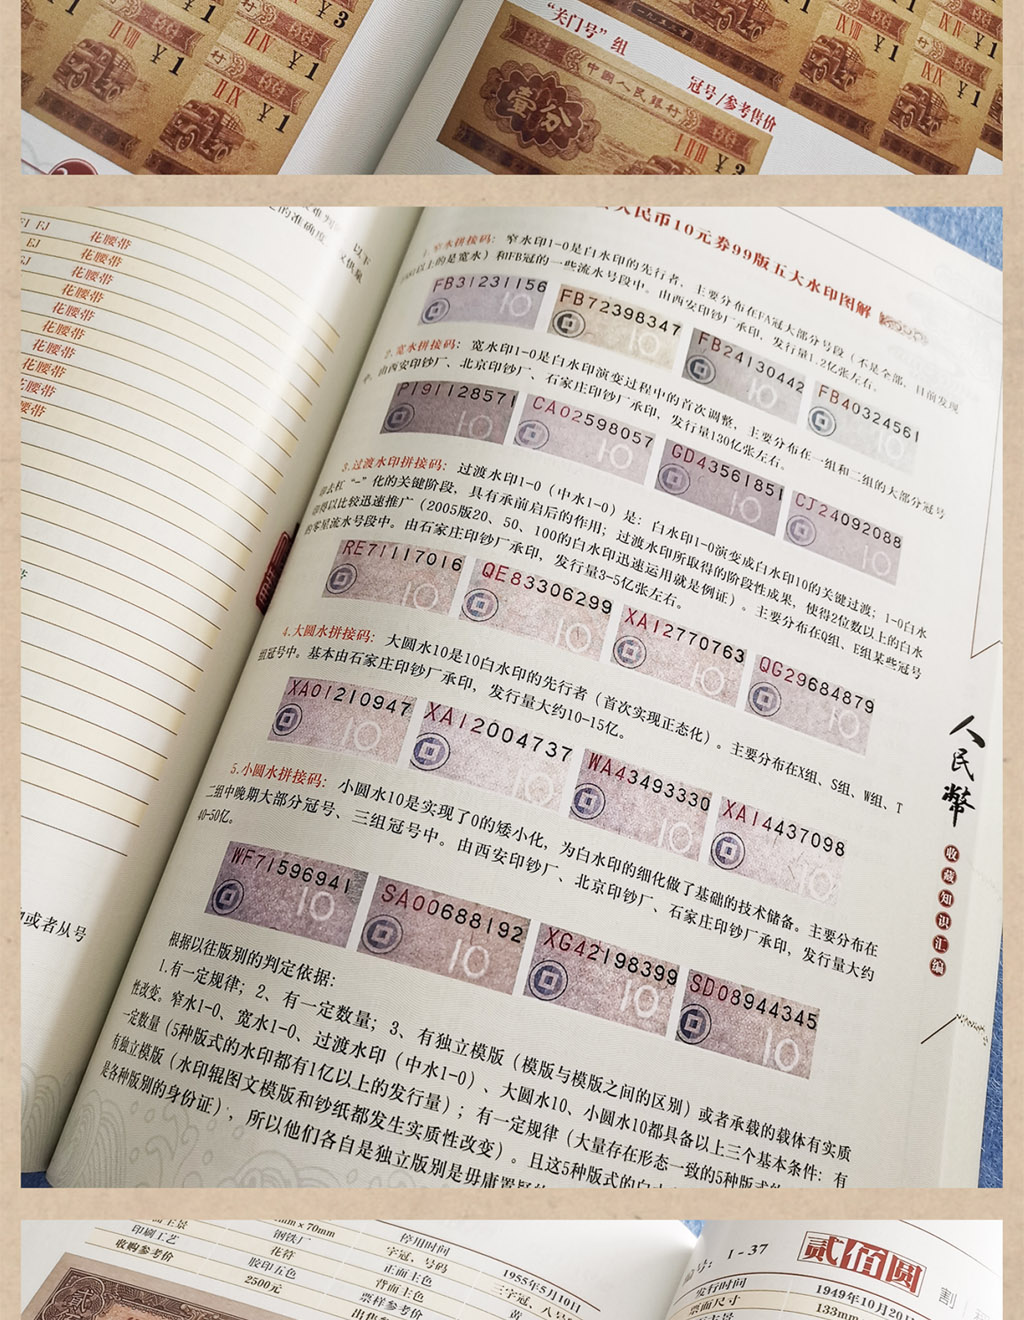 "关门号"组
冠号/参考售价
中國人民銀行
壹分
花腰带
花腰带
花腰带
花腰带
花腰带
花腰带
花腰带
花腰带
花腰带
人民币10元券99版五大水印图解
1.窄水拼接码：窄水印1-0是白水印的先行者，主要分布在FA冠大部分号段（不是全部，目前发现
以上的是宽水）和FB冠的一些流水号段中。由西安印钞厂承印，发行量1.2亿张左右。
FB31231156
FB72398347
FB24130442
FB40324561
2.宽水拼接码：宽水印1-0是白水印演变过程中的首次调整，主要分布在一组和二组的大部分冠号
中。由西安印钞厂、北京印钞厂、石家庄印钞厂承印，发行量130亿张左右。
PJ91128571
CA02598057
GD43561851
CJ24092088
3.过渡水印拼接码：过渡水印1-0（中水1-0）是：白水印1-0演变成白水印10的关键过渡；1-0白水
印去杠"-"化的关键阶段，具有承前启后的作用；过渡水印所取得的阶段性成果，使得2位数以上的白水
印得以比较迅速推广（2005版20、50、100的白水印迅速运用就是例证）。主要分布在Q组、E组某些冠号
的零星流水号段中。由石家庄印钞厂承印，发行量3-5亿张左右。
RE71117016
QE83306299
XA12770763
QG29684879
4.大圆水拼接码：大圆水10是10白水印的先行者（首次实现正态化）。主要分布在X组、S组、W组、T
组冠号中。基本由石家庄印钞厂承印，发行量大约10-15亿。
XA01210947
XA12004737
WA43493330
XA14437098
5.小圆水拼接码：小圆水10是实现了0的矮小化，为白水印的细化做了基础的技术储备。主要分布在
二组中晚期大部分冠号、三组冠号中。由西安印钞厂、北京印钞厂、石家庄印钞厂承印，发行量大约
40-50亿。
WF71596941
SA00688192
XG42198399
SD08944345
根据以往版别的判定依据：
1.有一定规律；2、有一定数量；3、有独立模版（模版与模版之间的区别）或者承载的载体有实质
性改变。窄水1-0、宽水1-0、过渡水印（中水1-0）、大圆水10、小圆水10都具备以上三个基本条件：有
一定数量（5种版式的水印都有1亿以上的发行量）；有一定规律（大量存在形态一致的5种版式的
有独立模版（水印辊图文模版和钞纸都发生实质性改变）。且这5种版式的白水
是各种版别的身份证），所以他们各自是独立版别是毋庸置疑的
或者从号
人民幣
收藏知识汇编
印刷工艺
钢铁厂
停用时间
收购参考价
花符
字冠、号码
1955年5月10日
胶印五色
正面主色
三字冠、八号
2500元
背面主色
黄
票样参考价
编号：
I-37
贰佰圆
发行时间
1949年10月20日
票面尺寸
133mm